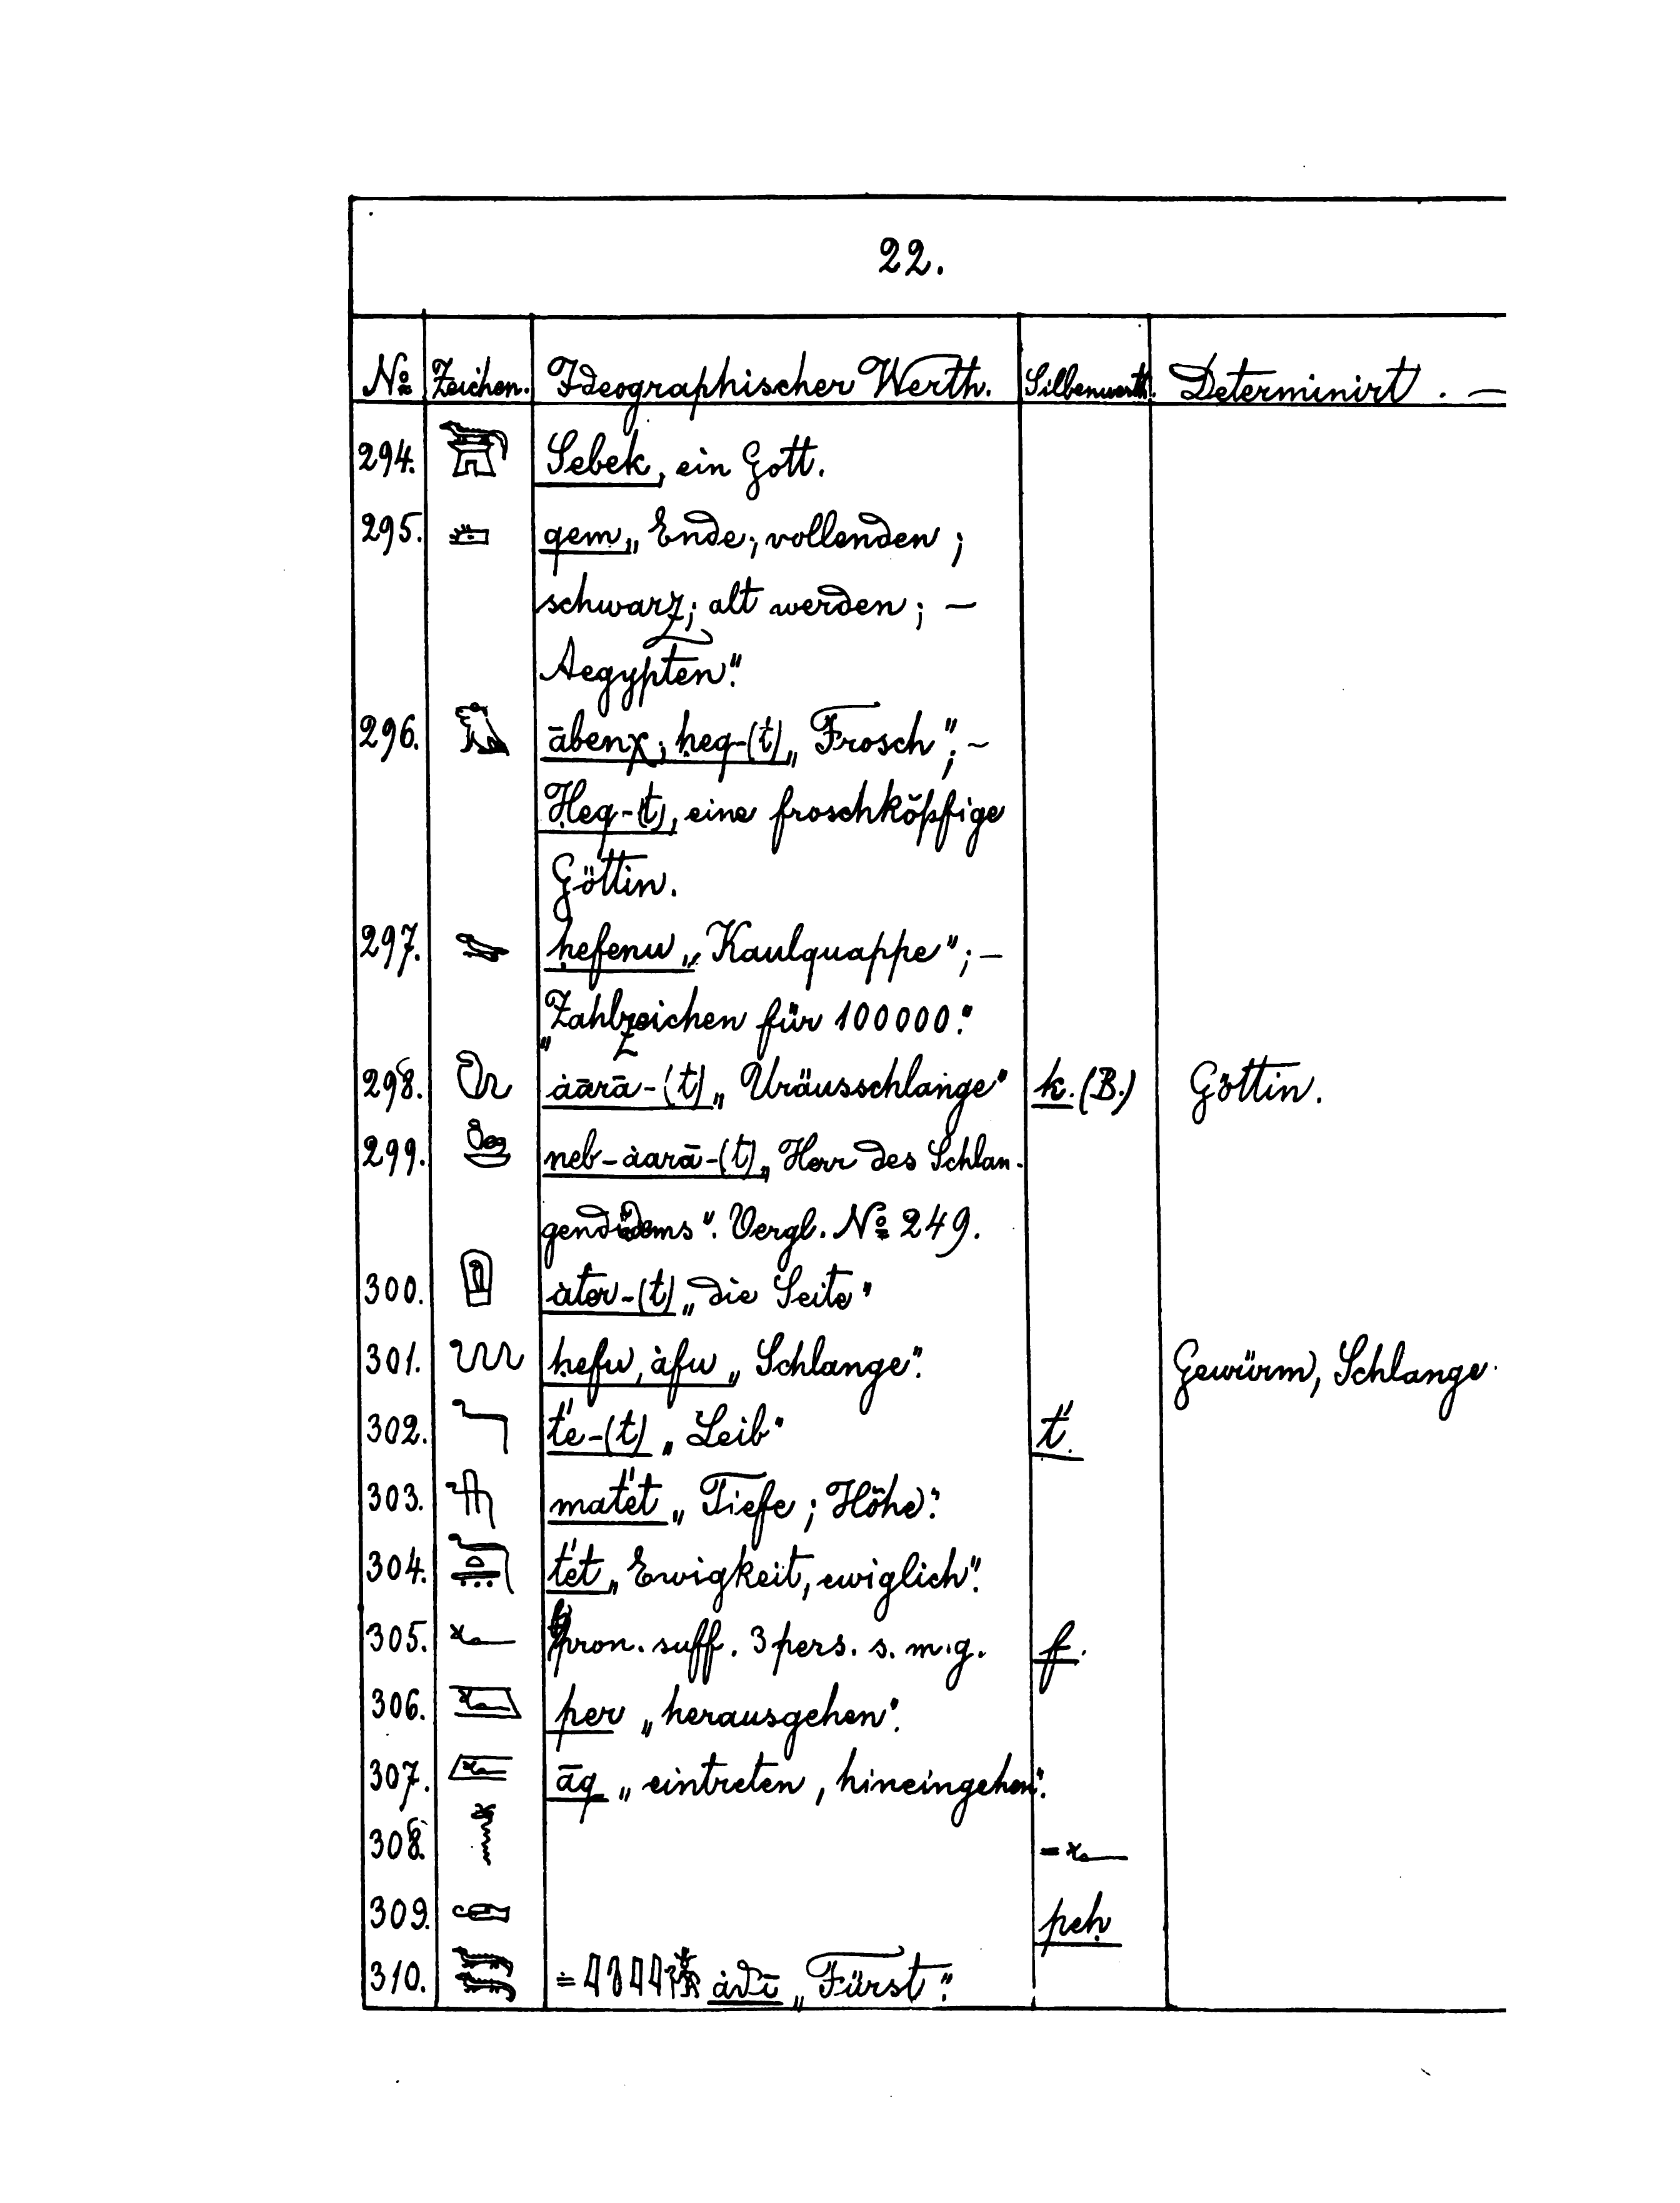 22.
№ Zeichen. Ideographischer Werth. Silbenwerth. Determinirt. —
294. Sebek, ein Gott.
295. qem „Ende; vollenden;
schwarz; alt werden; —
Aegypten".
296. ābenχ; ḥeq-(t) „Frosch"; —
Ḥeq-(t), eine froschköpfige
Göttin.
297. ḥefenu „Kaulquappe"; —
„Zahlzeichen für 100000".
298. ȧārā-(t) „Uräusschlange" k. (B.) Göttin.
299. neb-ȧarā-(t) „Herr des Schlan-
gendiadems". Vergl. № 249.
300. ȧter-(t) „die Seite"
301. ḥefu, ȧfu „Schlange". Gewürm, Schlange.
302. t'e-(t) „Leib" t'.
303. mat'et „Tiefe; Höhe".
304. t'et „Ewigkeit, ewiglich".
305. pron. suff. 3 pers. s. m. g. f.
306. per „herausgehen".
307. āq „eintreten, hineingehen".
308. = 𓆑
309. peḥ
310. = ȧdī „Fürst".